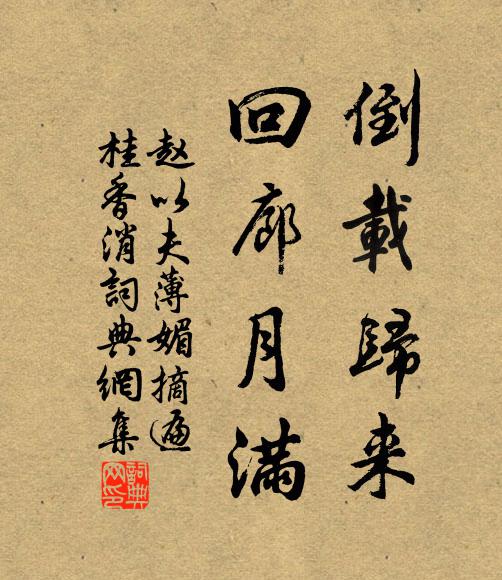 倒載歸来
回廊月滿
赵以夫薄媚摘遍
桂香消詞典網集
詞典
网印